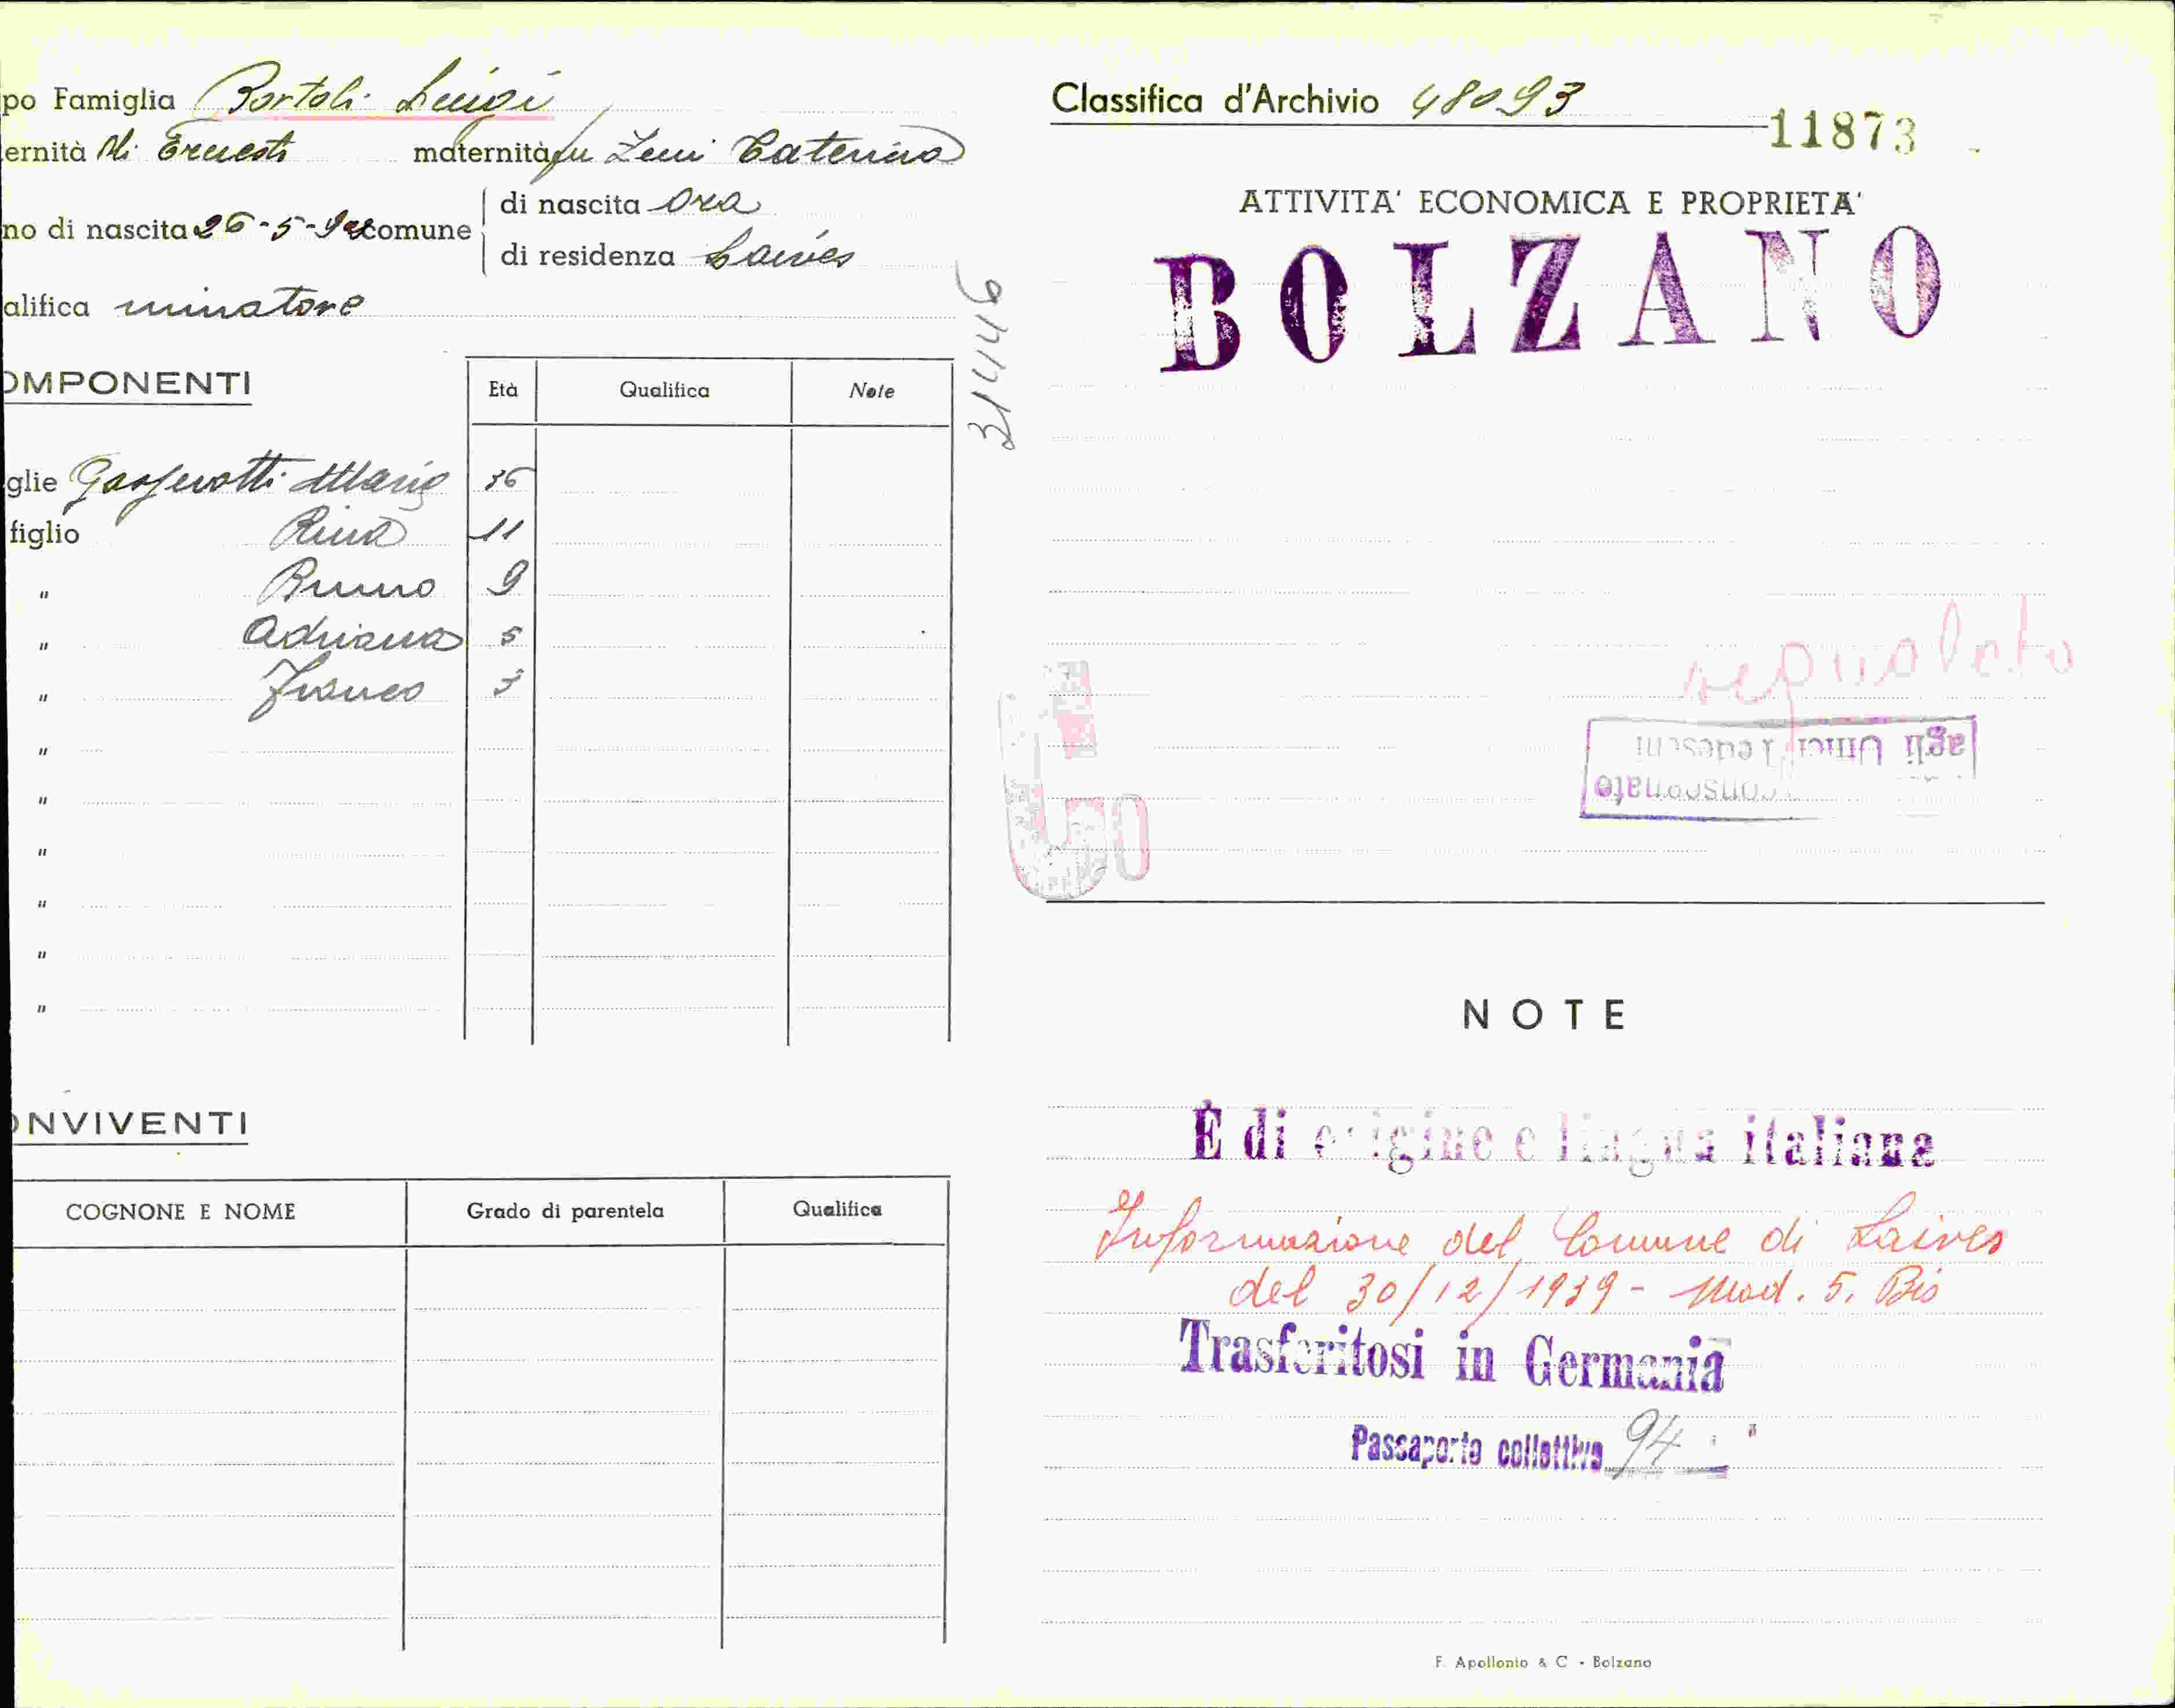 po Famiglia Bortoli Luigi
ernità di Ernesto maternità fu Zeni Caterina
no di nascita 26-5- comune di nascita Ora
di residenza Laives
alifica minatore
OMPONENTI
Età Qualifica Note
glie Gasperotti Maria 36
figlio Rina 11
" Bruno 9
" Adriana 5
" Franco 3
"
"
"
"
"
"
31446
ONVIVENTI
COGNONE E NOME Grado di parentela Qualifica
Classifica d'Archivio 48093
11873
ATTIVITA' ECONOMICA E PROPRIETA'
BOLZANO
segnalato
agli Uffici Tedeschi
NOTE
È di origine e lingua italiana
Informazione del Comune di Laives
del 30/12/1939 - Mod. 5. Bis
Trasferitosi in Germania
Passaporto collettivo 94
F. Apollonio & C - Bolzano